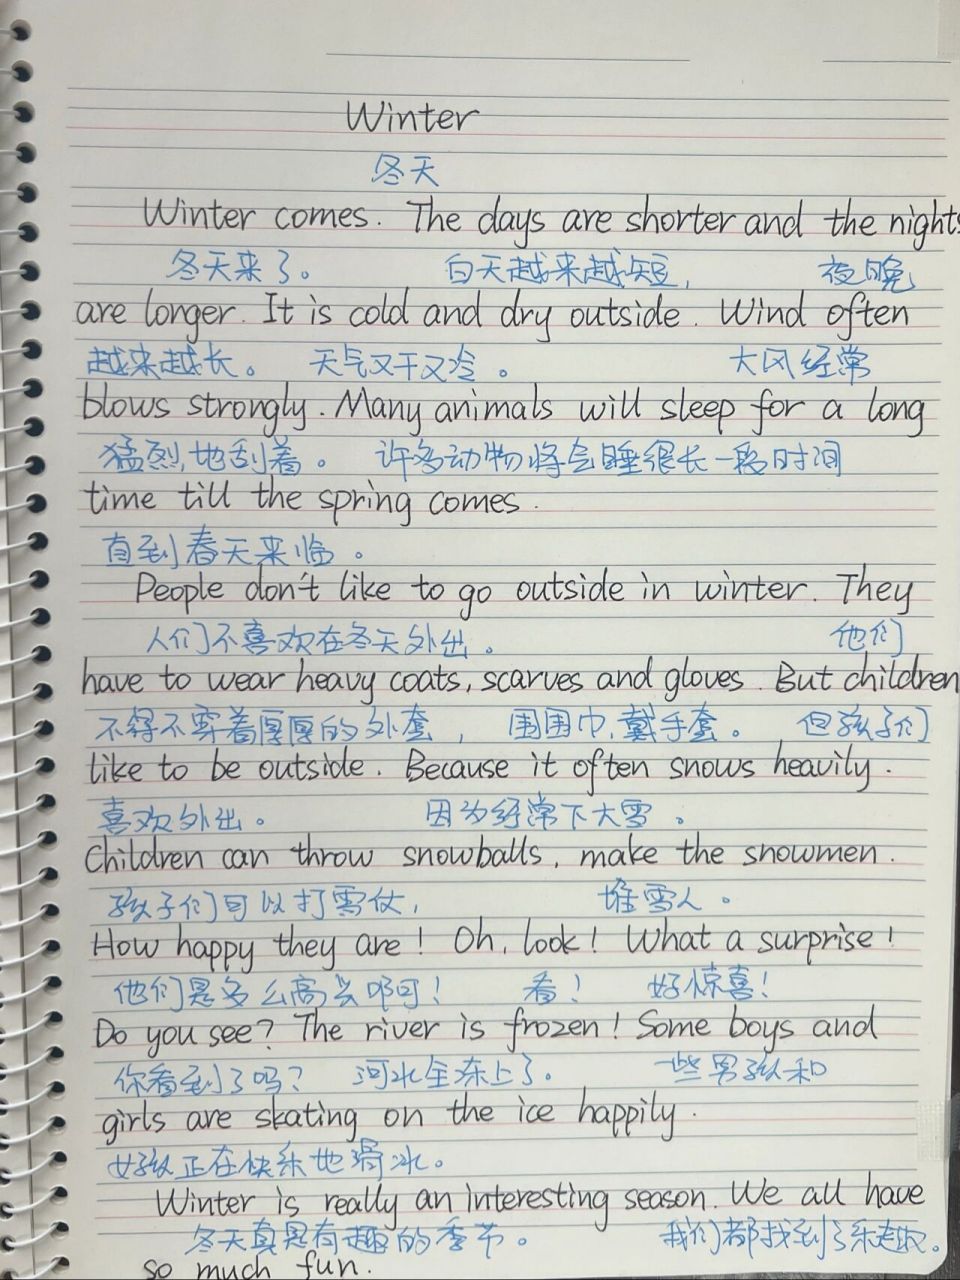 Winter
冬天
Winter comes. The days are shorter and the nights
冬天来了。 白天越来越短, 夜晚
are longer. It is cold and dry outside. Wind often
越来越长。 天气又干又冷。 大风经常
blows strongly. Many animals will sleep for a long
猛烈地刮着。 许多动物将会睡很长一段时间
time till the spring comes.
直到春天来临。
People don't like to go outside in winter. They
人们不喜欢在冬天外出。 他们
have to wear heavy coats, scarves and gloves. But children
不得不穿着厚厚的外套, 围围巾,戴手套。 但孩子们
like to be outside. Because it often snows heavily.
喜欢外出。 因为经常下大雪。
Children can throw snowballs, make the snowmen.
孩子们可以打雪仗, 堆雪人。
How happy they are! Oh, look! What a surprise!
他们是多么高兴啊! 看! 好惊喜!
Do you see? The river is frozen! Some boys and
你看到了吗? 河水全冻上了。 一些男孩和
girls are skating on the ice happily.
女孩正在快乐地滑冰。
Winter is really an interesting season. We all have
冬天真是有趣的季节。 我们都找到了乐趣。
so much fun.